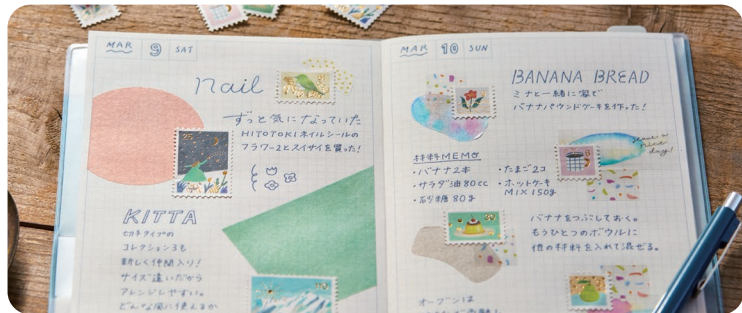 MAR 9 SAT
nail
ずっと気になっていた
HITOTOKIネイルシールの
フラワー2とスイサイを買った!
25
KITTA
切手タイプの
コレクション3も
新しく仲間入り!
サイズ違いだから
アレンジしやすい。
どんな風に使えるか
MAR 10 SUN
BANANA BREAD
ミナと一緒に家で
バナナパウンドケーキを作った!
have a
nice
day!
材料MEMO
・バナナ2本
・サラダ油80cc
・砂糖 80g
・たまご2コ
・ホットケーキ
MIX 150g
バナナをつぶしておく。
もうひとつのボウルに
他の材料を入れて混ぜる。
オーブンは